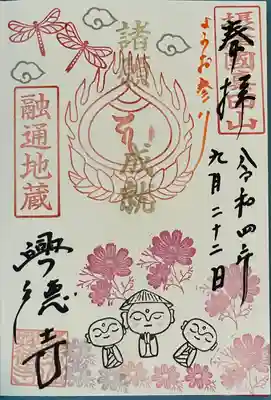 奉拝
令和四年
九月二十二日
ようお参り
諸災
成就
融通地蔵
興徳寺